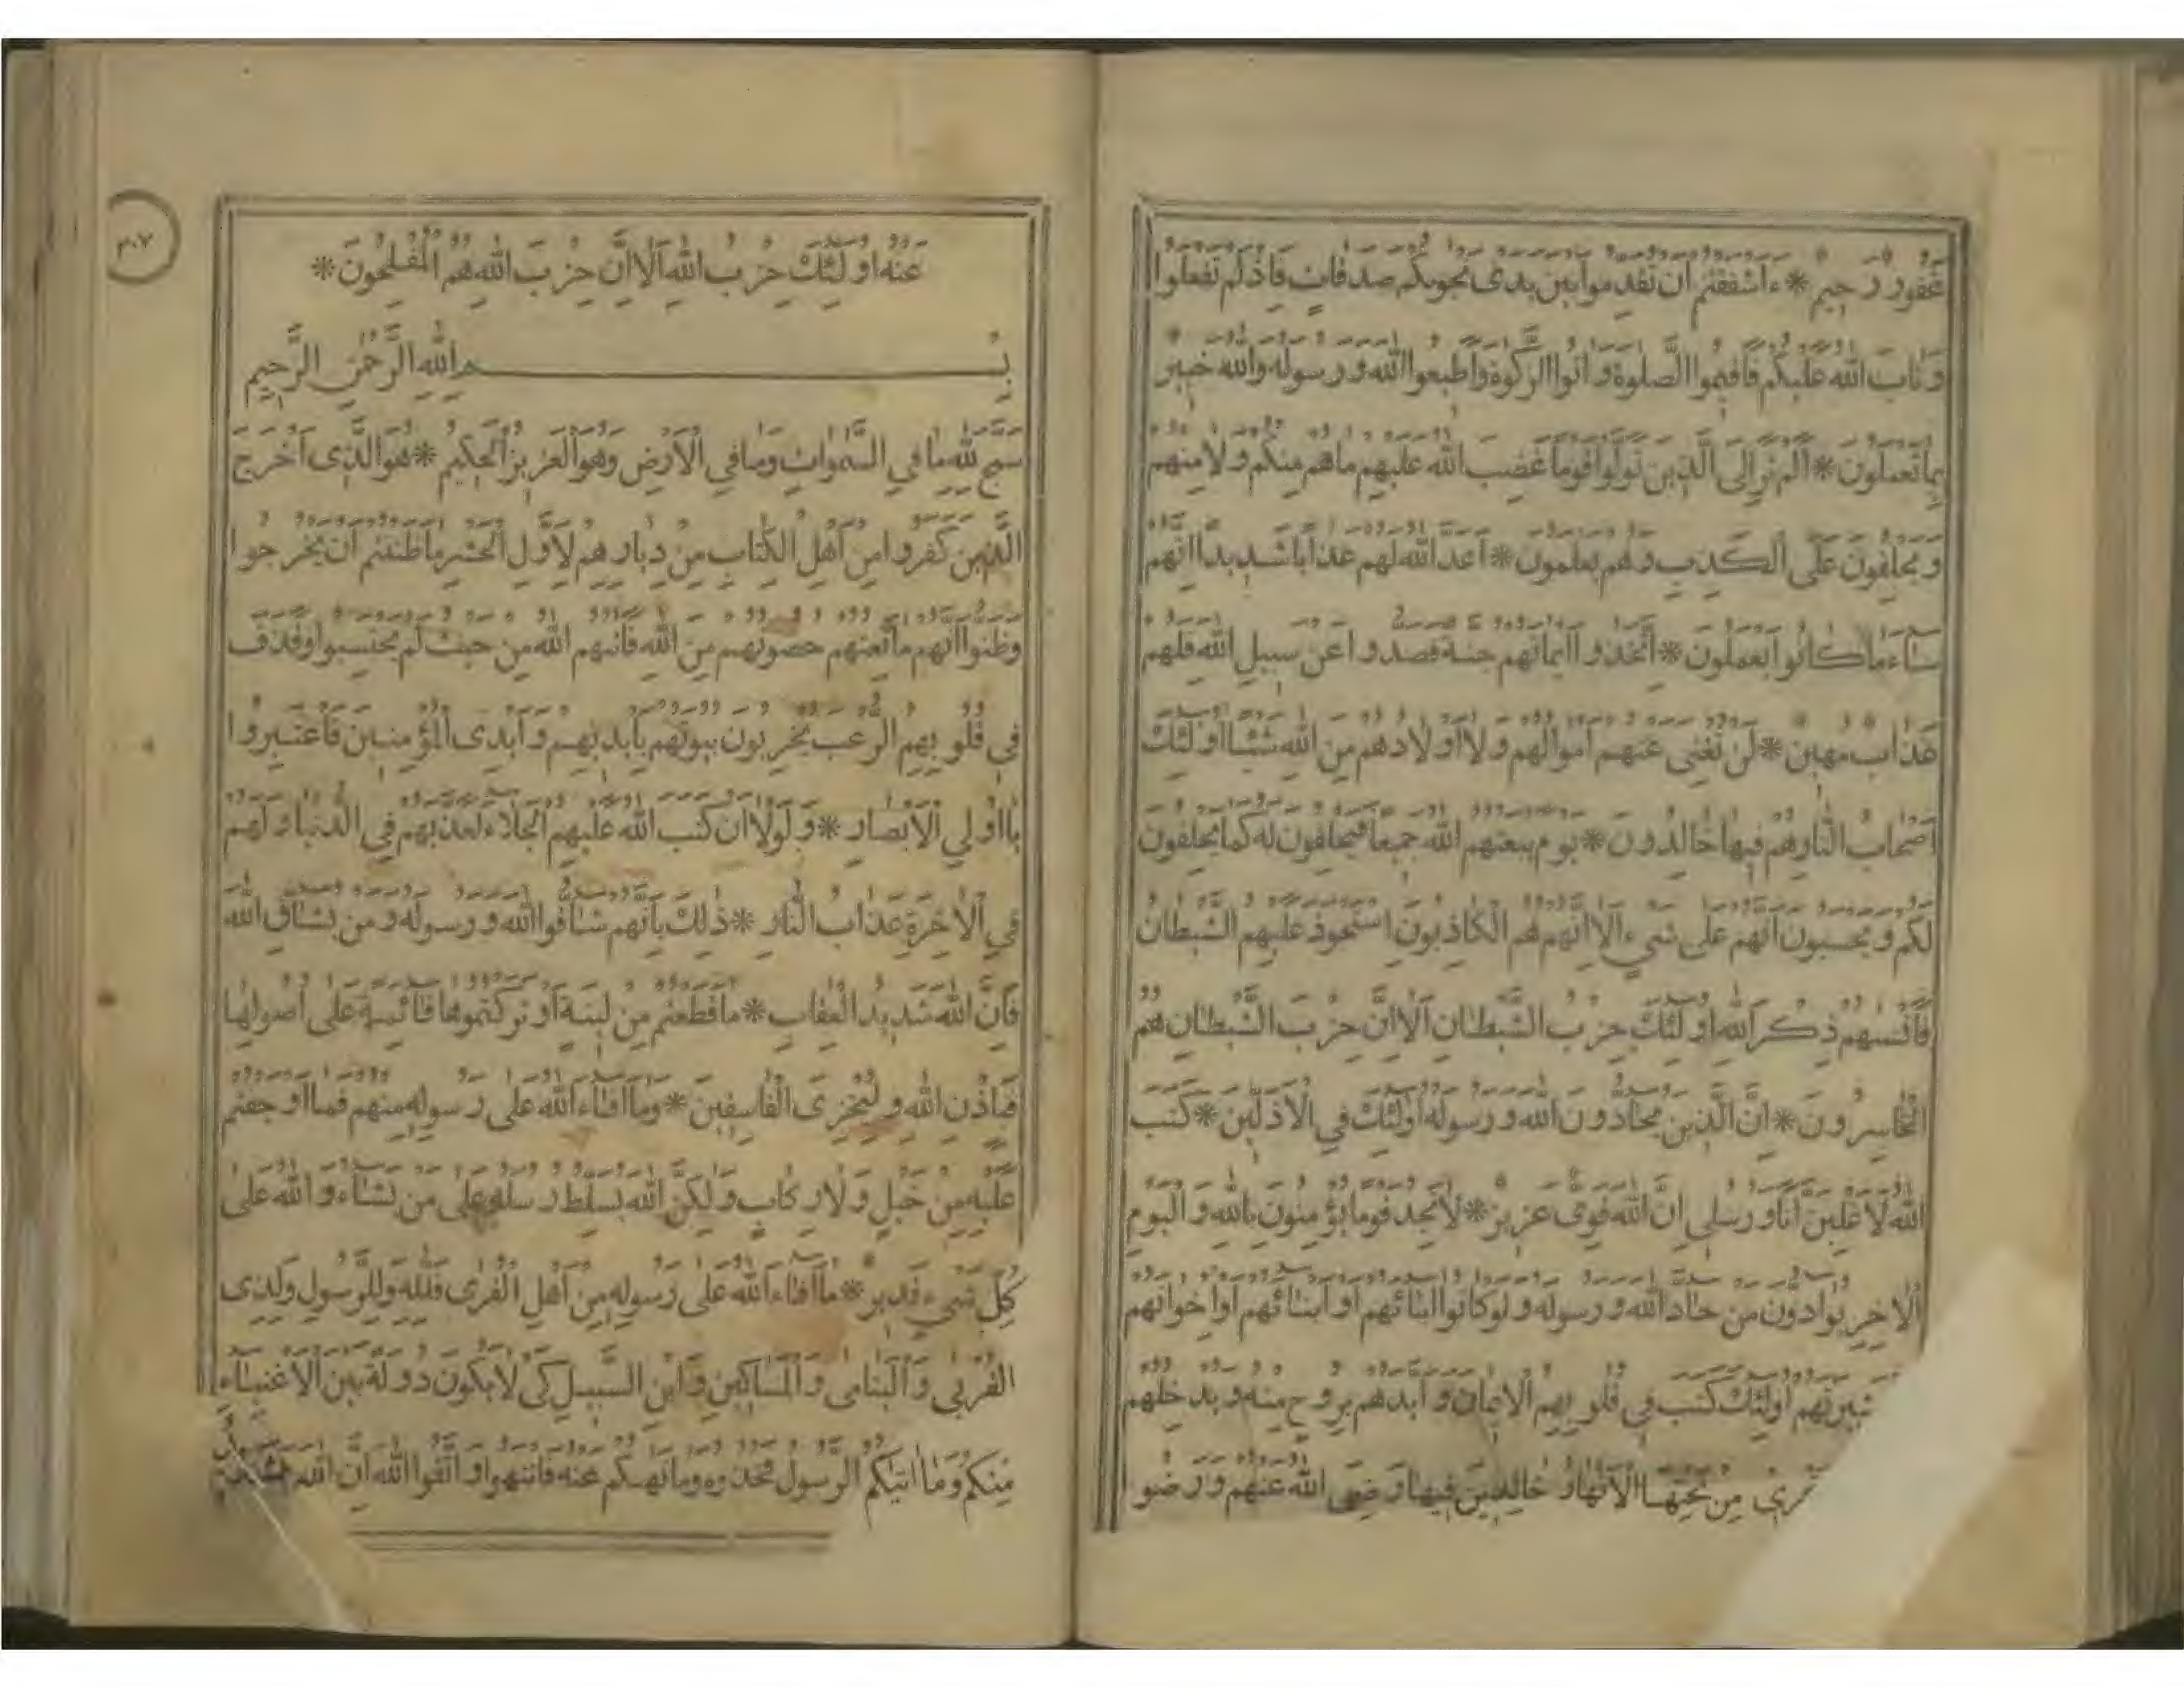 غفور رحيم * ءاشفقتم ان تقدموا بين يدى نجويكم صدقات فاذلم تفعلوا
وتاب الله عليكم فاقيموا الصلوة واتوا الزكوة واطيعوا الله ورسوله والله خبير
بما تعملون * الم تر الى الذين تولوا قوما غضب الله عليهم ماهم منكم ولا منهم
ويحلفون على الكذب وهم يعلمون * اعد الله لهم عذابا شديدا انهم
ساء ماكانوا يعملون * اتخذوا ايمانهم جنة فصدوا عن سبيل الله فلهم
عذاب مهين * لن تغنى عنهم اموالهم ولا اولادهم من الله شيئا اولئك
اصحاب النار هم فيها خالدون * يوم يبعثهم الله جميعا فيحلفون له كما يحلفون
لكم ويحسبون انهم على شىء الا انهم هم الكاذبون استحوذ عليهم الشيطان
فانسيهم ذكر الله اولئك حزب الشيطان الا ان حزب الشيطان هم
الخاسرون * ان الذين يحادون الله ورسوله اولئك في الاذلين * كتب
الله لاغلبن انا ورسلى ان الله قوى عزيز * لا تجد قوما يؤمنون بالله واليوم
الاخر يوادون من حاد الله ورسوله ولو كانوا ابائهم او ابنائهم او اخوانهم
عشيرتهم اولئك كتب في قلوبهم الايمان وايدهم بروح منه ويدخلهم
تجرى من تحتها الانهار خالدين فيها رضى الله عنهم ورضو
٣٠٧
عنه اولئك حزب الله الا ان حزب الله هم المفلحون *
بسم الله الرحمن الرحيم
سبح لله ما في السموات وما في الارض وهو العزيز الحكيم * هو الذى اخرج
الذين كفروا من اهل الكتاب من ديارهم لاول الحشر ما ظننتم ان يخرجوا
وظنوا انهم مانعتهم حصونهم من الله فاتيهم الله من حيث لم يحتسبوا وقذف
في قلوبهم الرعب يخربون بيوتهم بايديهم وايدى المؤمنين فاعتبروا
يا اولي الابصار * ولولا ان كتب الله عليهم الجلاء لعذبهم في الدنيا ولهم
في الاخرة عذاب النار * ذلك بانهم شاقوا الله ورسوله ومن يشاق الله
فان الله شديد العقاب * ما قطعتم من لينة او تركتموها قائمة على اصولها
فباذن الله وليخزى الفاسقين * وما افاء الله على رسوله منهم فما اوجفتم
عليه من خيل ولا ركاب ولكن الله يسلط رسله على من يشاء والله على
كل شىء قدير * ما افاء الله على رسوله من اهل القرى فلله وللرسول ولذى
القربى واليتامى والمساكين وابن السبيل كى لا يكون دولة بين الاغنياء
منكم وما اتيكم الرسول فخذوه وما نهيكم عنه فانتهوا واتقوا الله ان الله